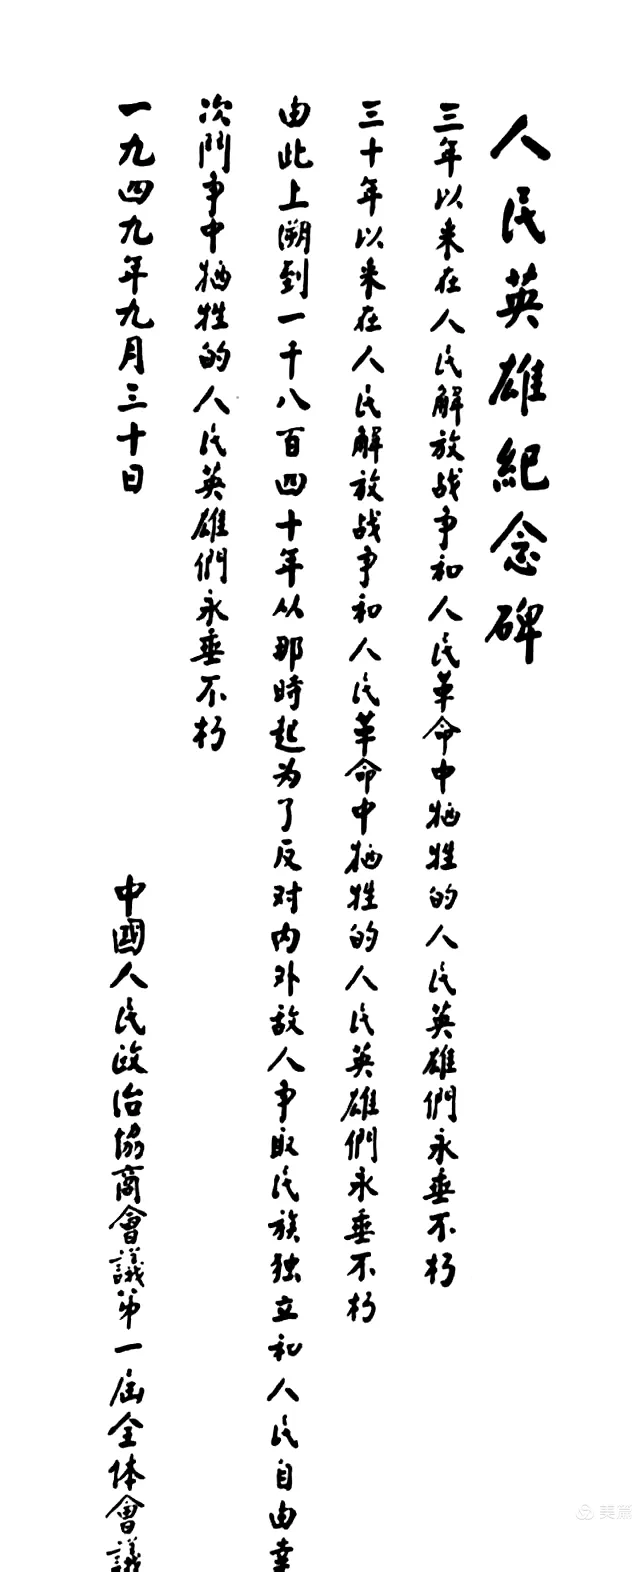 人民英雄紀念碑
三年以来在人民解放战争和人民革命中牺牲的人民英雄們永垂不朽
三十年以来在人民解放战争和人民革命中牺牲的人民英雄們永垂不朽
由此上溯到一千八百四十年从那時起为了反对内外敌人争取民族独立和人民自由幸
次鬥争中牺牲的人民英雄們永垂不朽
一九四九年九月三十日
中國人民政治協商會議第一届全体會議
美篇